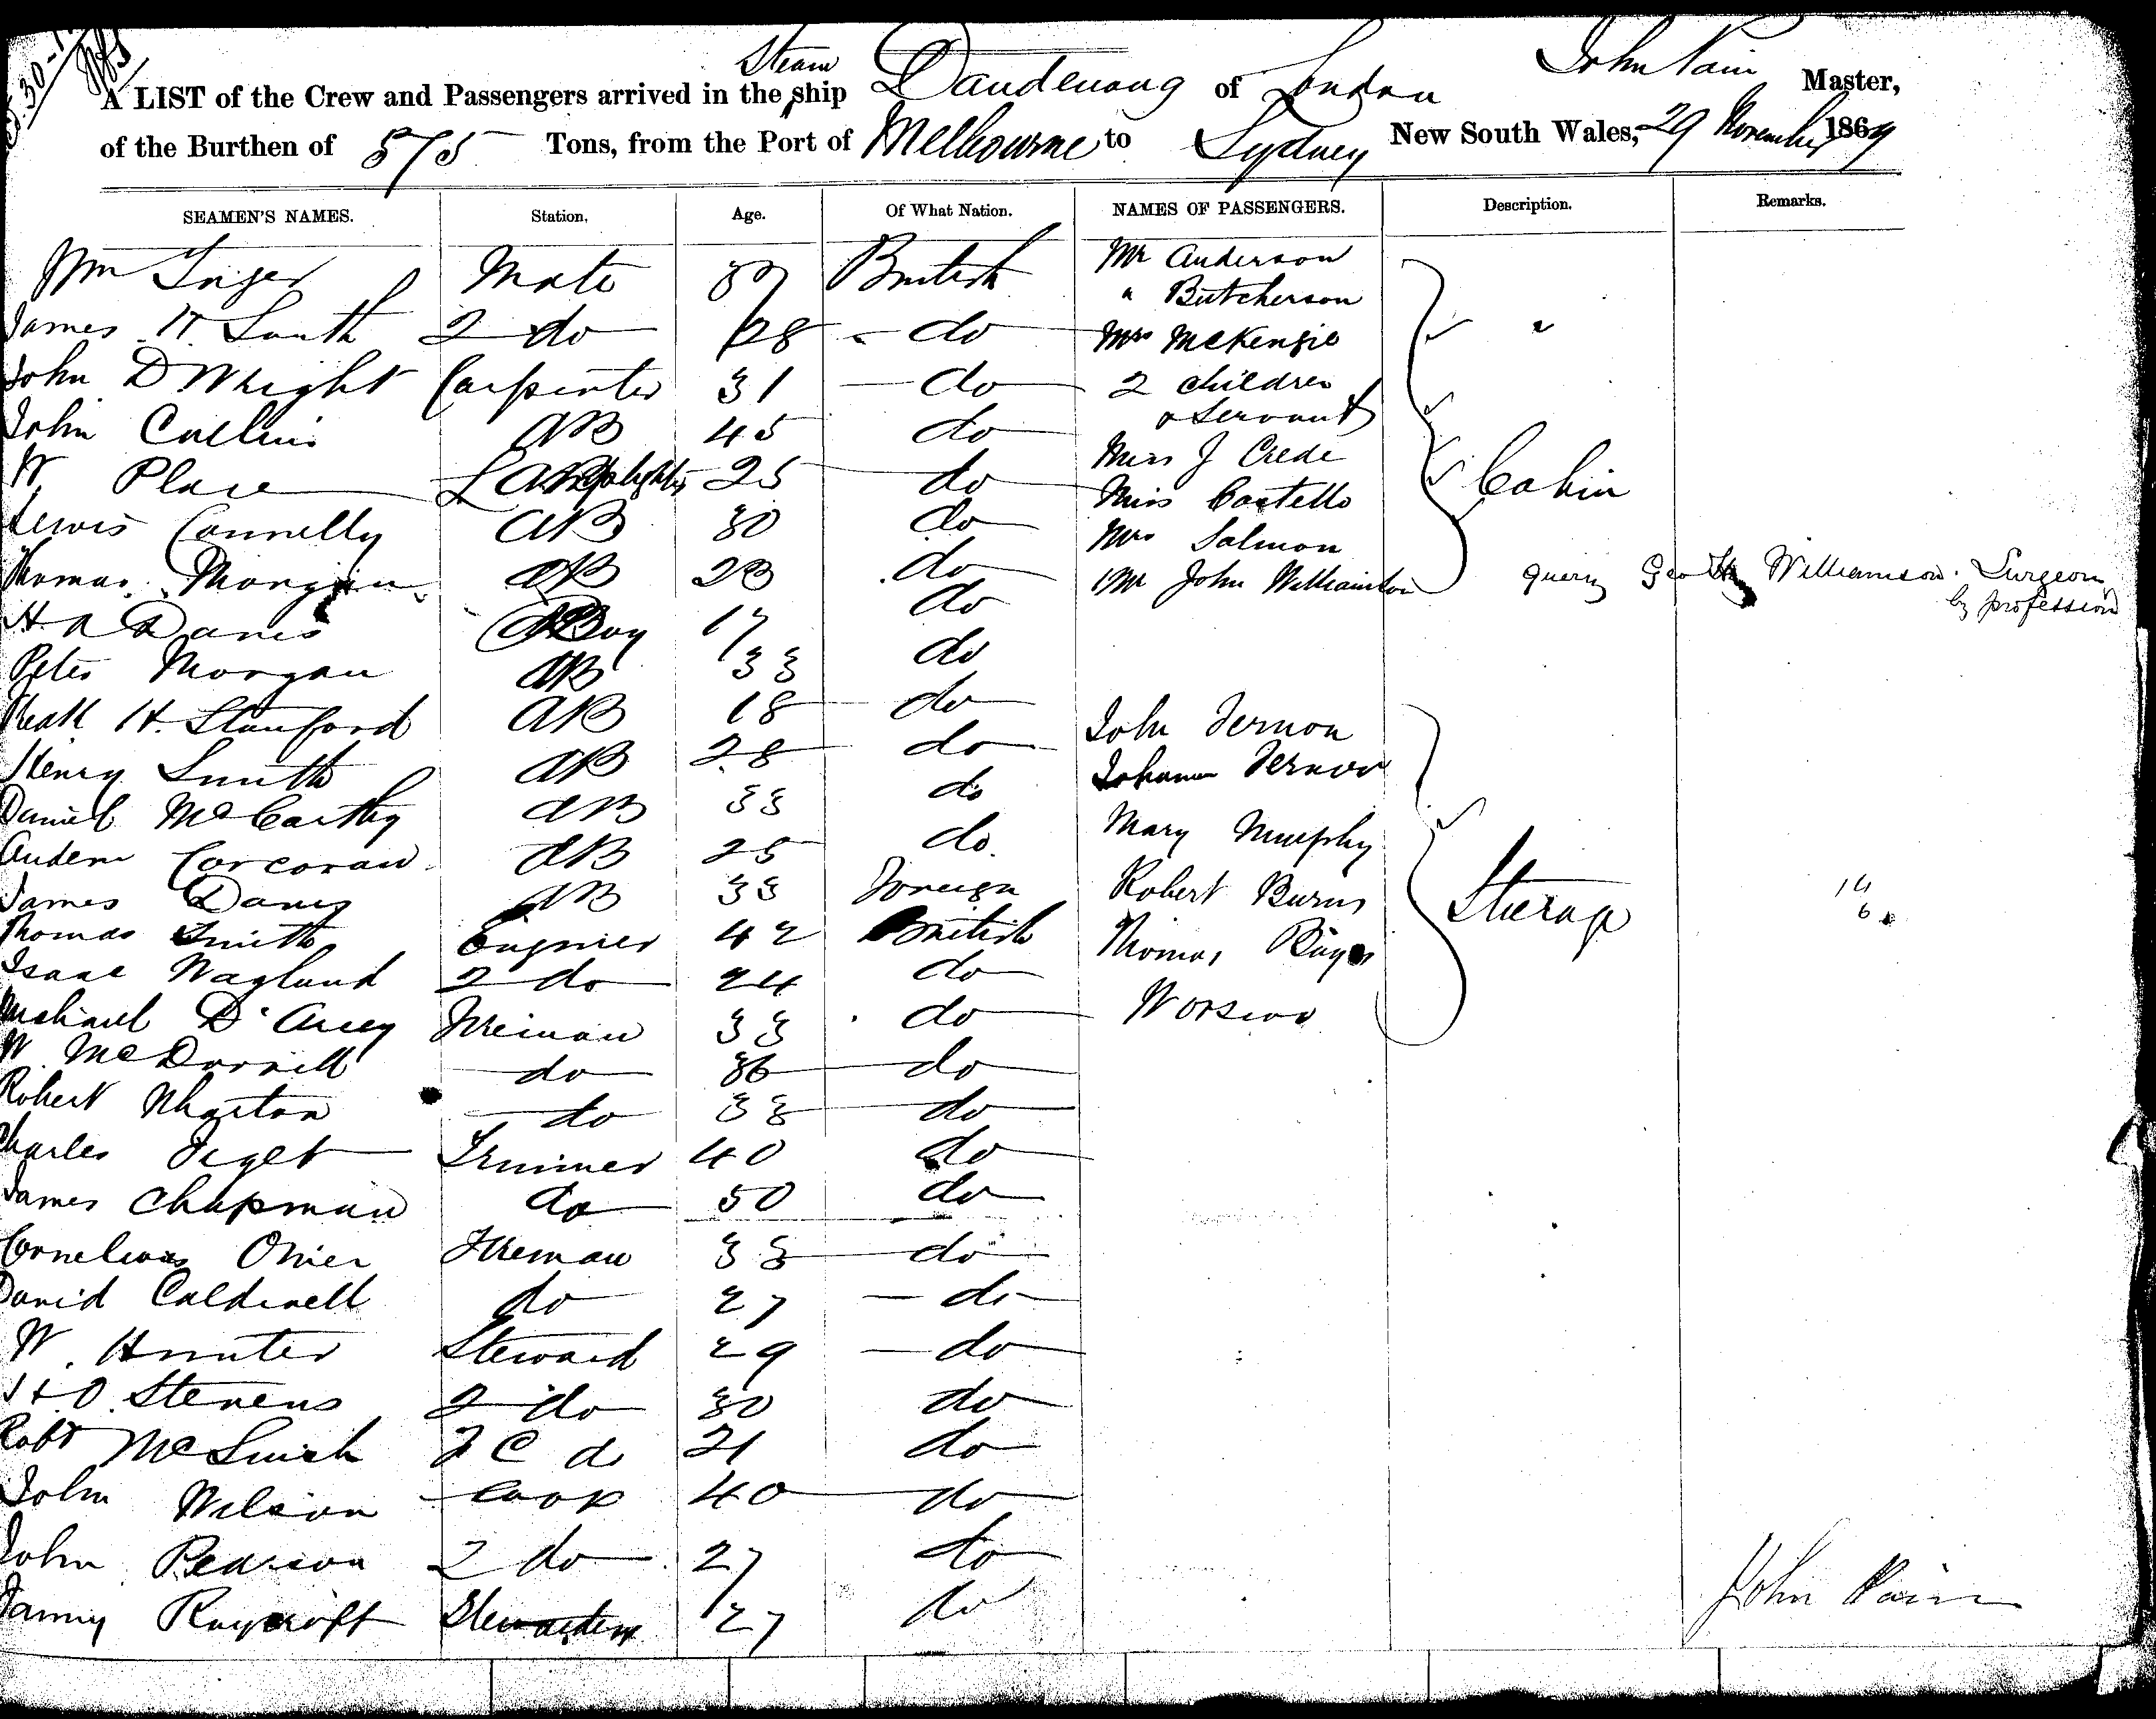 Steam Dandenong London John Pain
A LIST of the Crew and Passengers arrived in the ship of Master,
of the Burthen of 575 Tons, from the Port of Melbourne to Sydney New South Wales, 29 November 1869
SEAMEN'S NAMES. Station. Age. Of What Nation. NAMES OF PASSENGERS. Description. Remarks.
Wm Mate British Mr Anderson
" Butcherson
James H. South 2 do 28 do Mrs McKenzie "
John D Wright Carpenter 31 do 2 children
& Servant
John Collins AB 45 do
W Place Lamplighter 25 do Miss J Crede Cabin
Miss Costello
Lewis Connelly AB 30 do Mrs Salmon
Thomas Morgan AB 23 do Mr John Williamson query Geo Williamson. Surgeon
by profession
H A Davis Boy 17 do
Peter Morgan AB 33 do
H. Stanford AB 18 do John Vernon
Henry Smith AB 28 do Johanna Vernon
Daniel McCarthy AB 33 do Mary Murphy
Corcoran AB 25 do
James Davis AB 33 Foreign Robert Burns Steerage 14
6
Thomas Smith Engineer 42 British Thomas
Isaac Waglund 2 do 24 do
Michael D'Arcy Fireman 33 do
W. McDonnell do 36 do
Robert Wharton do 33 do
Charles Trimmer 40 do
James Chapman do 50 do
Cornelius Fireman 33 do
David Caldwell do 27 do
W. Hunter Steward 29 do
Stevens 2 do 30 do
Robt 21 do
John Wilson Cook 40 do
John Pearson 2 do 27 do
Fanny Raycroft Stewardess 27 do
John Pain